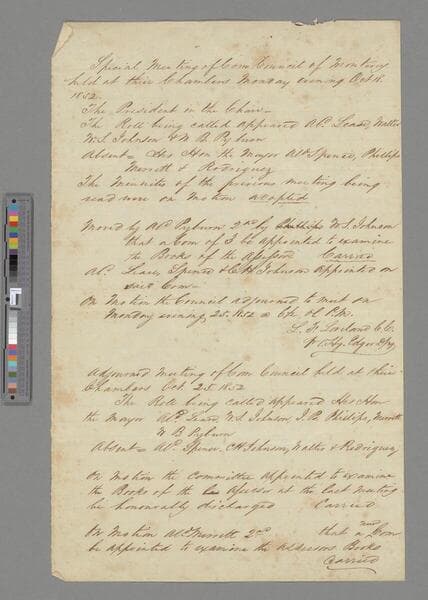 Special Meeting of Com Council of Monterey
held at their Chambers Monday evening Oct 18.
1852.
The President in the Chair—
The Roll being called appeared Ald. Leare, Walter
W. S. Johnson & W B. Pyburn
Absent— His Hon the Mayor Ald Spence, Phillips
Merrett & Rodriguez
The Minutes of the previous meeting being
read were on Motion accepted
Moved by Ald Pyburn 2nd by W. S. Johnson
that a Com of 3 be appointed to examine
the Books of the Carried
Ald. Spence & C H Johnson appointed on
said Com—
On Motion the Council adjourned to meet on
Monday evening 25. 1852 o'cl P.M.
L. F. Loveland C.C.
Adjourned Meeting of Com Council held at their
Chambers Oct 25 1852
The Roll being called appeared His Hon
the Mayor Ald. W. S. Johnson, J. P. Phillips, Merrett
W B Pyburn
Absent— Ald. Spence, C H Johnson, Walter & Rodriguez
On Motion the Committee appointed to examine
the Books of the at the last meeting
be honorably discharged Carried
On Motion Ald Merrett 2nd that a new Com
be appointed to examine the Books
Carried